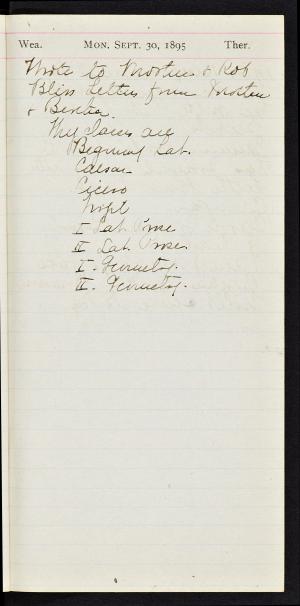 Wea. MON. SEPT. 30, 1895 Ther.
Wrote to Morten & Rob
Bliss Letter from Morten
& Bertha.
My classes are
Beginning Lat.
Caesar
Cicero
I Lat. Prose
II Lat. Prose
I. Geometry.
II. Geometry.